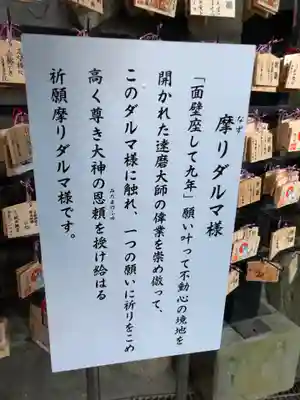 摩りダルマ様
なず
「面壁座して九年」願い叶って不動心の境地を
開かれた達磨大師の偉業を崇め倣って、
このダルマ様に触れ、一つの願いに祈りをこめ
高く尊き大神の恩頼を授け給はる
みたまのふゆ
祈願摩りダルマ様です。